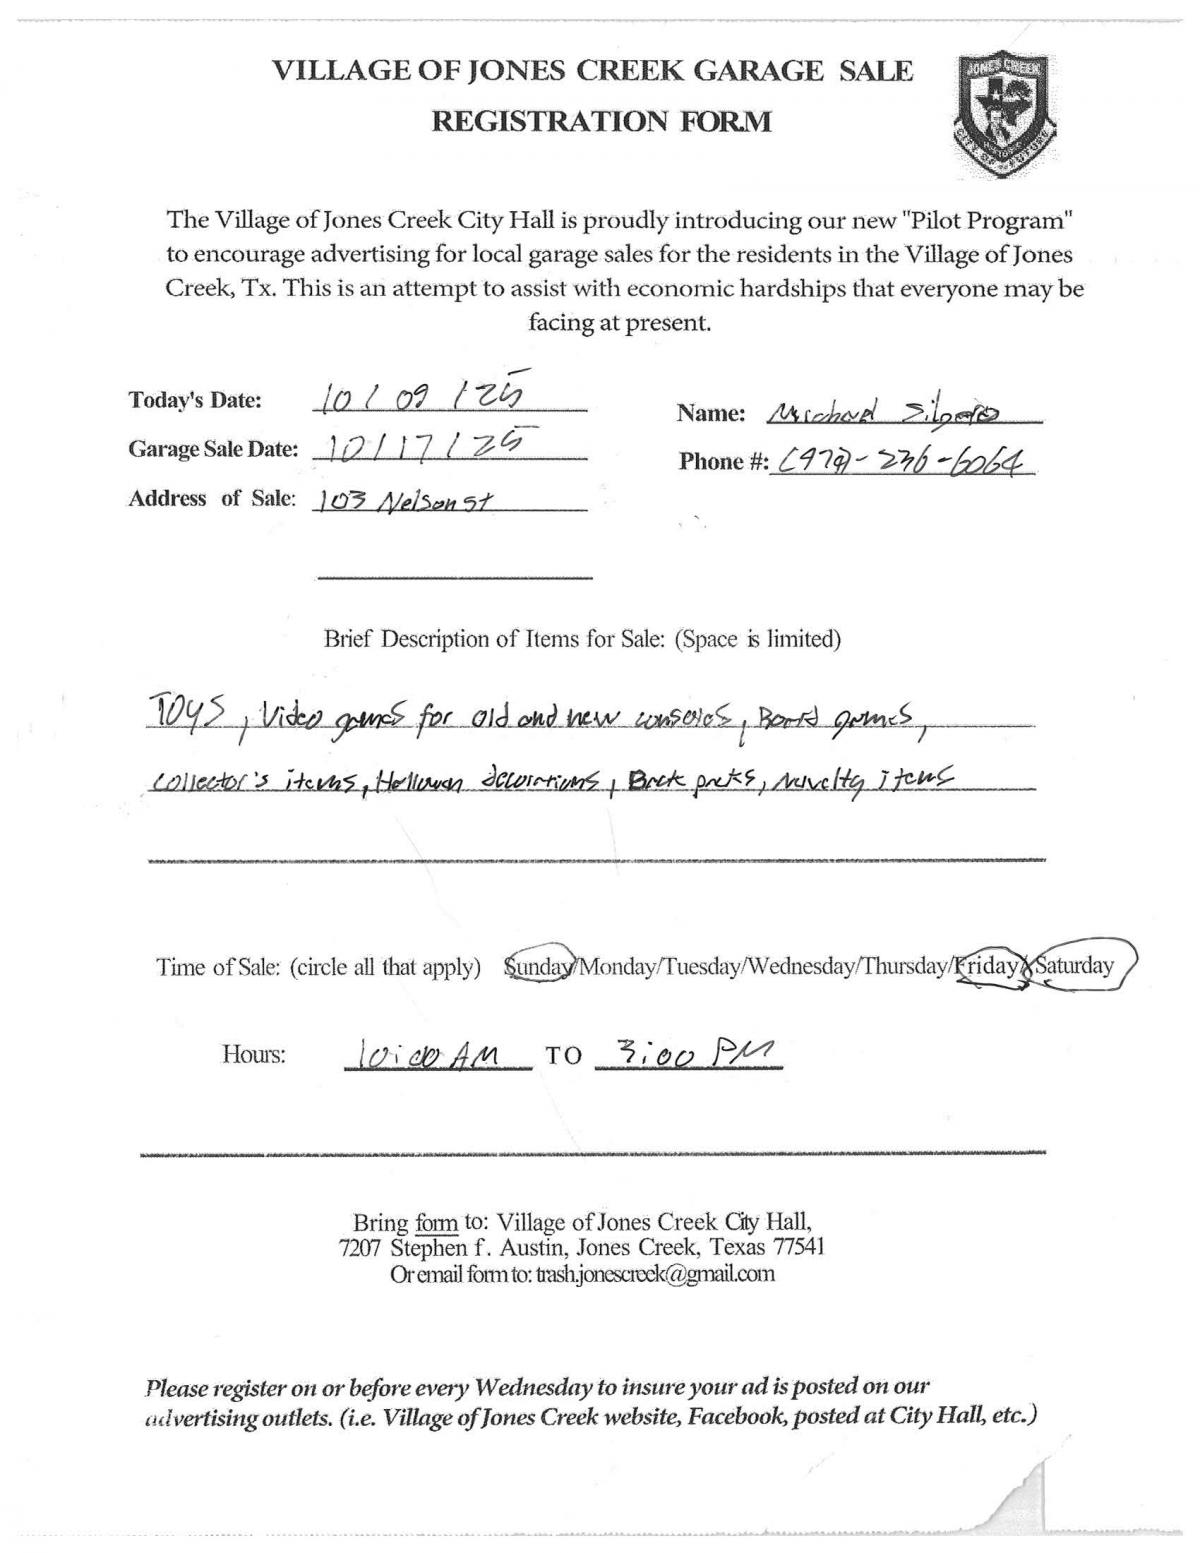 VILLAGE OF JONES CREEK GARAGE SALE
REGISTRATION FORM
JONES CREEK
CITY OF FUTURE
The Village of Jones Creek City Hall is proudly introducing our new "Pilot Program"
to encourage advertising for local garage sales for the residents in the Village of Jones
Creek, Tx. This is an attempt to assist with economic hardships that everyone may be
facing at present.
Today's Date: 10 / 09 / 25
Name: Michael
Garage Sale Date: 10/17/25
Phone #: (979)-236-6064
Address of Sale: 103 Nelson st
Brief Description of Items for Sale: (Space is limited)
TOYS, Video games for old and new consoles, Board games,
collector's items, Halloween decorations, Back packs, Novelty items
Time of Sale: (circle all that apply) Sunday/Monday/Tuesday/Wednesday/Thursday/Friday/Saturday
Hours: 10:00 AM TO 3:00 PM
Bring form to: Village of Jones Creek City Hall,
7207 Stephen f. Austin, Jones Creek, Texas 77541
Or email form to: trash.jonescreek@gmail.com
Please register on or before every Wednesday to insure your ad is posted on our
advertising outlets. (i.e. Village of Jones Creek website, Facebook, posted at City Hall, etc.)